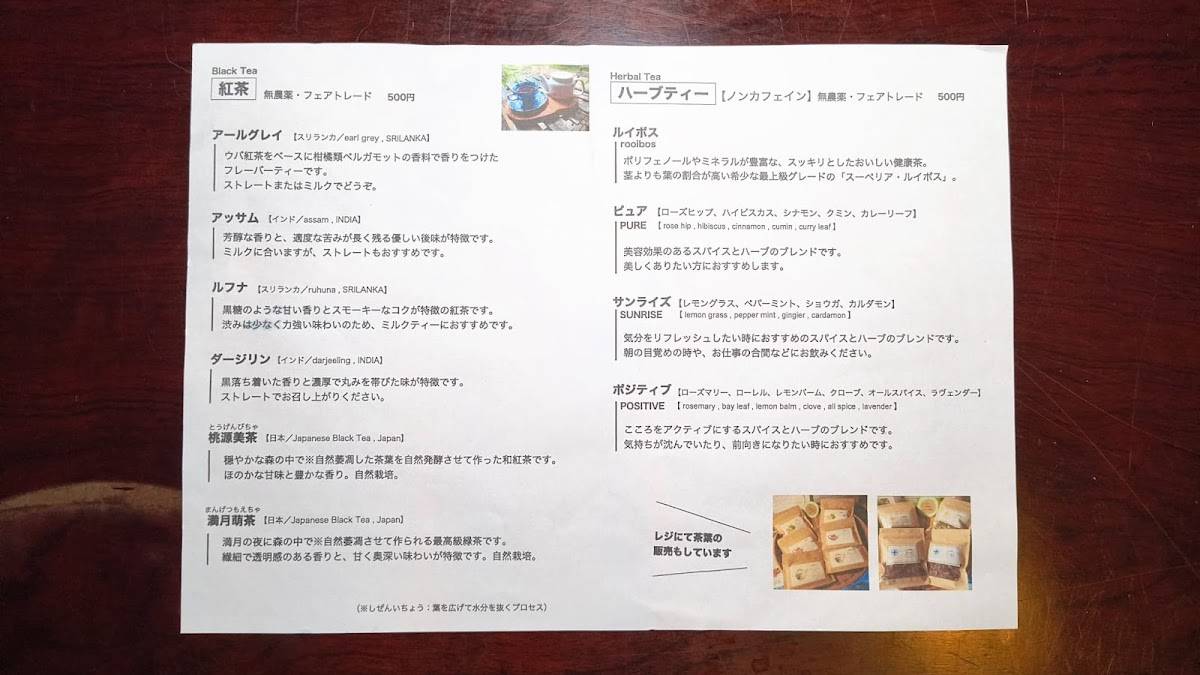 Black Tea
紅茶 無農薬・フェアトレード 500円
アールグレイ 【スリランカ／earl grey , SRILANKA】
ウバ紅茶をベースに柑橘類ベルガモットの香料で香りをつけた
フレーバーティーです。
ストレートまたはミルクでどうぞ。
アッサム 【インド／assam , INDIA】
芳醇な香りと、適度な苦みが長く残る優しい後味が特徴です。
ミルクに合いますが、ストレートもおすすめです。
ルフナ 【スリランカ／ruhuna , SRILANKA】
黒糖のような甘い香りとスモーキーなコクが特徴の紅茶です。
渋みは少なく力強い味わいのため、ミルクティーにおすすめです。
ダージリン 【インド／darjeeling , INDIA】
黒落ち着いた香りと濃厚で丸みを帯びた味が特徴です。
ストレートでお召し上がりください。
とうげんびちゃ
桃源美茶 【日本／Japanese Black Tea , Japan】
穏やかな森の中で※自然萎凋した茶葉を自然発酵させて作った和紅茶です。
ほのかな甘味と豊かな香り。自然栽培。
まんげつもえちゃ
満月萌茶 【日本／Japanese Black Tea , Japan】
満月の夜に森の中で※自然萎凋させて作られる最高級緑茶です。
繊細で透明感のある香りと、甘く奥深い味わいが特徴です。自然栽培。
（※しぜんいちょう：葉を広げて水分を抜くプロセス）
Herbal Tea
ハーブティー 【ノンカフェイン】無農薬・フェアトレード 500円
ルイボス
rooibos
ポリフェノールやミネラルが豊富な、スッキリとしたおいしい健康茶。
茎よりも葉の割合が高い希少な最上級グレードの「スーペリア・ルイボス」。
ピュア 【ローズヒップ、ハイビスカス、シナモン、クミン、カレーリーフ】
PURE 【 rose hip , hibiscus , cinnamon , cumin , curry leaf 】
美容効果のあるスパイスとハーブのブレンドです。
美しくありたい方におすすめします。
サンライズ 【レモングラス、ペパーミント、ショウガ、カルダモン】
SUNRISE 【 lemon grass , pepper mint , gingier , cardamon 】
気分をリフレッシュしたい時におすすめのスパイスとハーブのブレンドです。
朝の目覚めの時や、お仕事の合間などにお飲みください。
ポジティブ 【ローズマリー、ローレル、レモンバーム、クローブ、オールスパイス、ラヴェンダー】
POSITIVE 【 rosemary , bay leaf , lemon balm , clove , all spice , lavender 】
こころをアクティブにするスパイスとハーブのブレンドです。
気持ちが沈んでいたり、前向きになりたい時におすすめです。
レジにて茶葉の
販売もしています